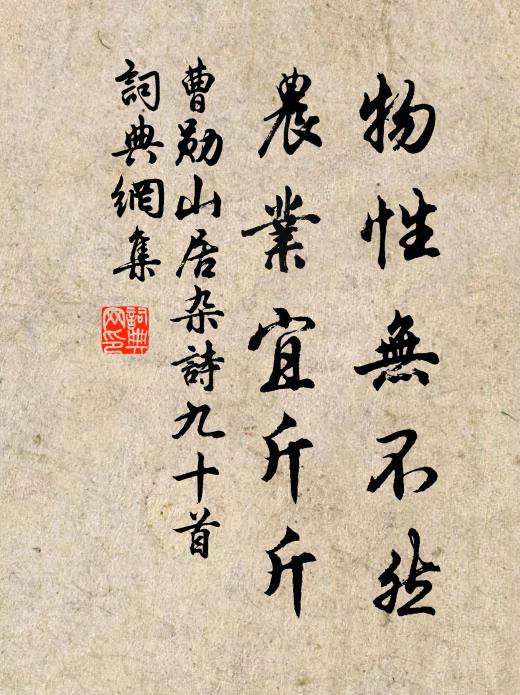 物性無不然
農業宜斤斤
曹勛山居杂詩九十首
詞典網集
詞典網印